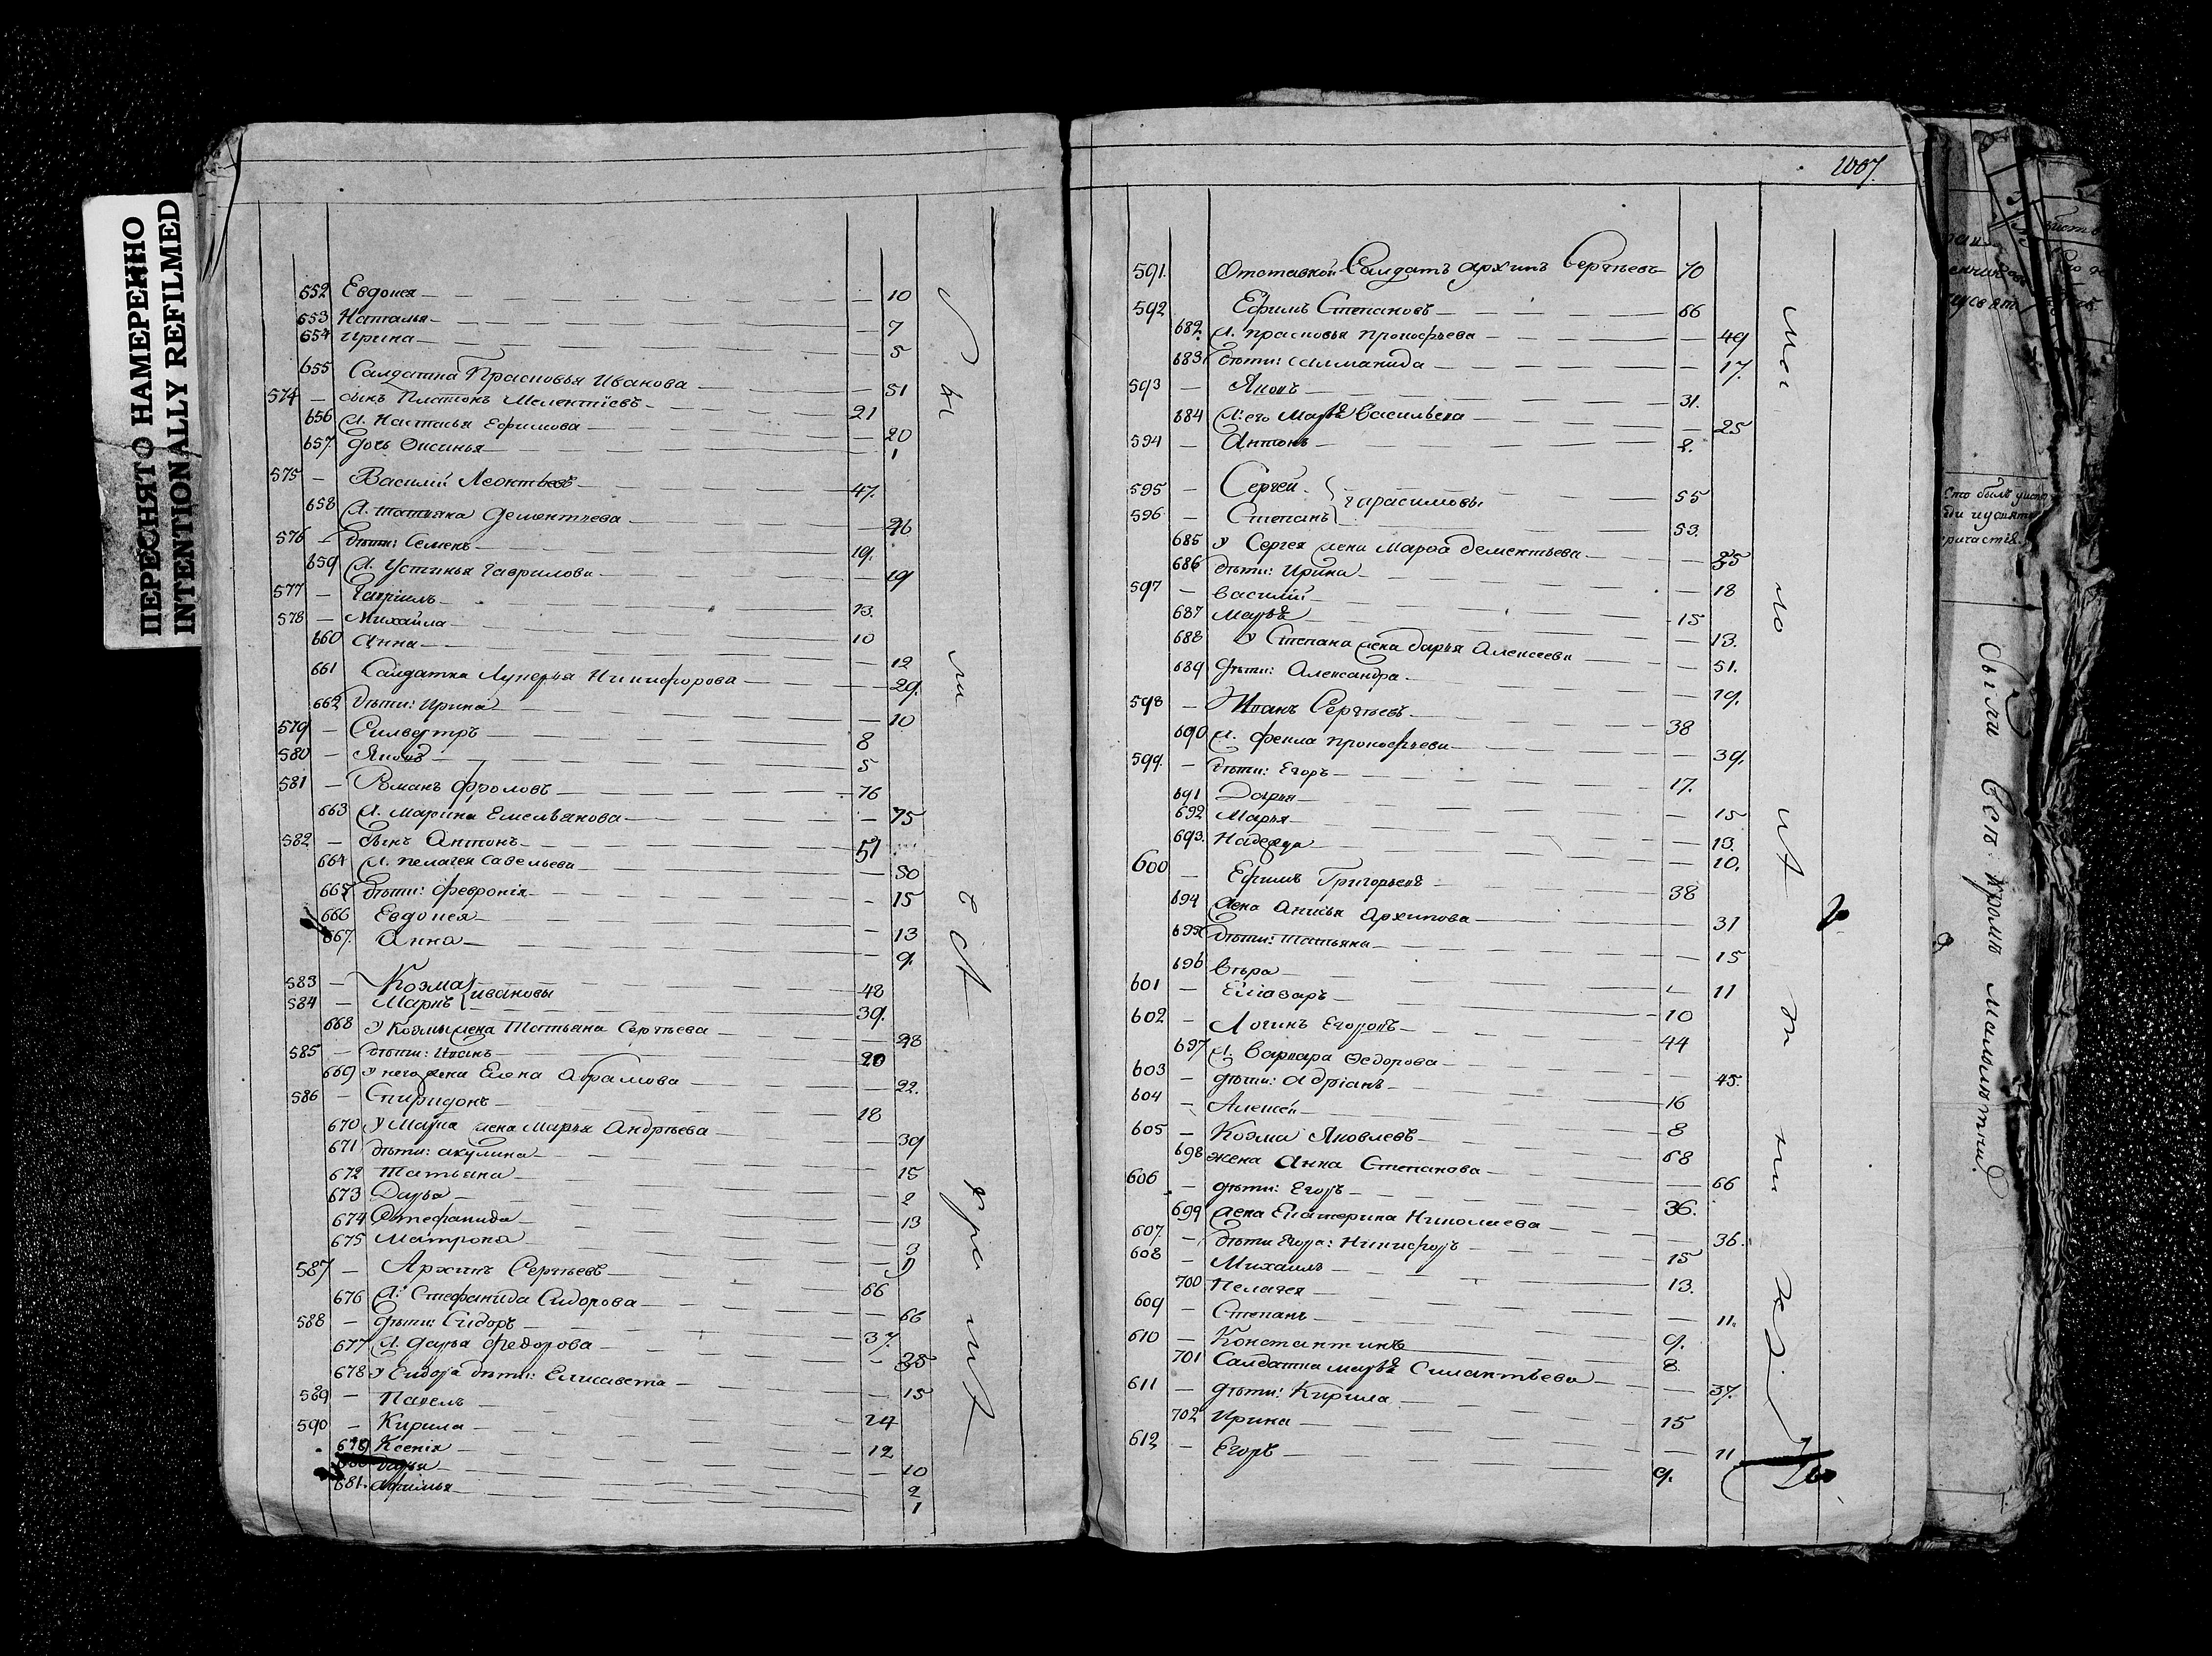 ПЕРЕСНЯТО НАМЕРЕННО
INTENTIONALLY REFILMED
552 Евдокея 10
553 Наталья 7
654 Ирина 5
655 Салдатка Прасковья Иванова 51
574 сынъ Платонъ Мелентіевъ 21
656 Ж. Настасья Ефимова 20
657 дочь Оксинья 1
575 Василій Леонтьевъ 47.
658 Ж. татьяна Дементьева 46
576 дѣти: Семенъ 19.
659 Ж. Устинья Гаврилова 19
577 Гавріилъ 13.
578 Михайла 10
660 Анна 12
661 Салдатка Лукерья Никифорова 29.
662 Дѣти: Ирина 10
579 Силвестръ 8
580 Яковъ 5
581 Романъ Фроловъ 76
663 Ж. Марина Емельянова 75
582 сынъ Антонъ 51
664 Ж. пелагея Савельева 50
665 дѣти: Февронія 15
666 Евдокея 13
667. Анна 9.
583 Козма
584 Маркъ ивановы 48
39.
668 у Козмы жена Татьяна Сергѣева 48
585 дѣти: Иванъ 20
669 у него жена Елена Абрамова 22.
586 Спиридонъ 18
670 у Марка жена Марья Андрѣева 39
671 дѣти: акулина 15
672 Татьяна 2
673 Дарья 13
674 Стефанида 3
675 Матрона 1
587 Архипъ Сергѣевъ 66
676 Ж. Стефанида Сидорова 66
588 дѣти: Сидоръ 37.
677 Ж. дарья Федорова 35
678 у Сидора дѣти: Елисавета 15
589 Павелъ 14
590 Кирила 12
679 Ксенія 10
680 дарья 2
681. Афимья 1
1007.
591. Отставной Салдатъ Архипъ Сергѣевъ 70
592 Ефимъ Степановъ 66
682. Ж. прасковья прокофьева 49
683. дѣти: Саломанида 17.
593 Яковъ 31.
684 Ж. его Марѳа Васильева 25
594 Антонъ 8.
595 Сергей
596 Степанъ Герасимовы 55
53.
685 у Сергея жена Марѳа Дементьева 55
686 дѣти: Ирина 18
597 василій 15
687 Марѳа 13.
688 у Степана жена дарья Алексеева 51.
689 дѣти: Александра 19.
598 Иванъ Сергѣевъ 38
690 Ж. фекла прокофьева 39.
599. дѣти: Егоръ 17.
691 Дарья 15
692 Марья 13.
693. Надежда 10.
600 Ефимъ Григорьевъ 38
694 Жена Анисья Архипова 31
695 дѣти: татьяна 15
696 вѣра 11
601 Елиазаръ 10
602 Логинъ Егоровъ 44
697 Ж. варвара Ѳедорова 45.
603 дѣти: Адріанъ 16
604 Алексей 8
605 Козма Яковлевъ 68
698 жена Анна Степанова 66
606 дѣти: Егоръ 36.
699 Жена Екатерина Николаева 36.
607. дѣти Егора: Никифоръ 15
608 Михаилъ 13.
700 Пелагея 11.
609 Степанъ 9.
610 Константинъ 8.
701 Салдатка марѳа Силантьева 37.
611 дѣти: Кирила 15
702 Ирина 11
612 Егоръ 9.
были всѣ кромѣ малолѣтни